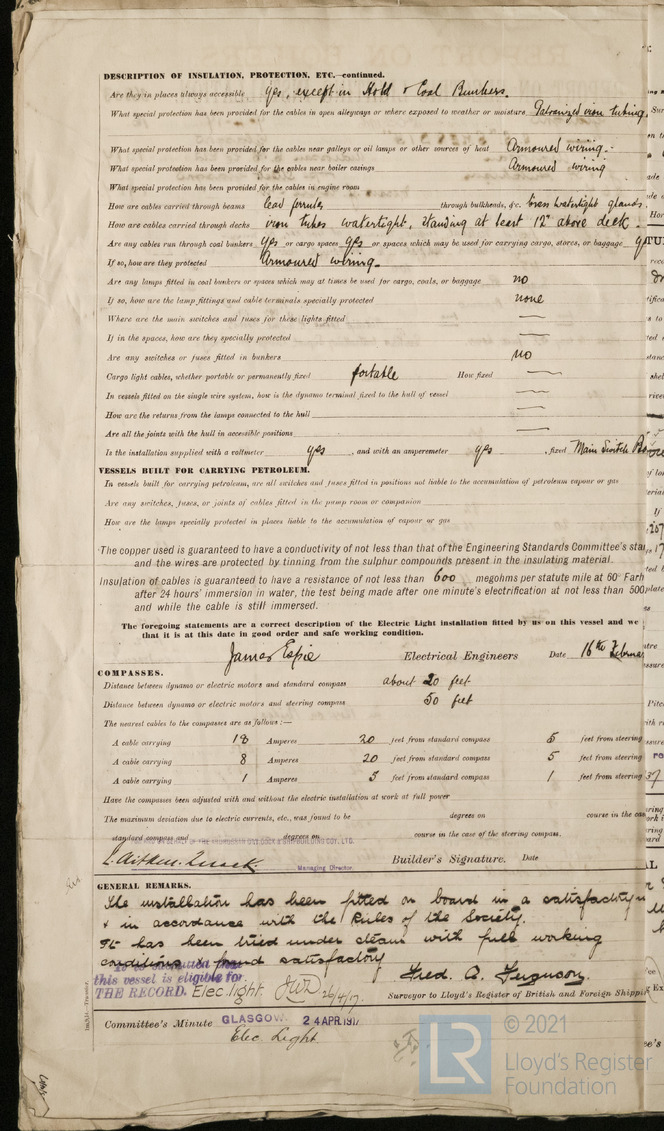 DESCRIPTION OF INSULATION, PROTECTION, ETC.—continued.
Are they in places always accessible yes, except in Hold & Coal Bunkers.
What special protection has been provided for the cables in open alleyways or where exposed to weather or moisture Galvanized iron tubing,
What special protection has been provided for the cables near galleys or oil lamps or other sources of heat Armoured wiring.
What special protection has been provided for the cables near boiler casings Armoured wiring
What special protection has been provided for the cables in engine room
How are cables carried through beams lead ferrules through bulkheads, &c. brass watertight glands.
How are cables carried through decks iron tubes watertight, standing at least 12" above deck.
Are any cables run through coal bunkers yes or cargo spaces yes or spaces which may be used for carrying cargo, stores, or baggage
If so, how are they protected Armoured wiring.
Are any lamps fitted in coal bunkers or spaces which may at times be used for cargo, coals, or baggage no
If so, how are the lamp fittings and cable terminals specially protected none
Where are the main switches and fuses for these lights fitted —
If in the spaces, how are they specially protected —
Are any switches or fuses fitted in bunkers no
Cargo light cables, whether portable or permanently fixed portable How fixed —
In vessels fitted on the single wire system, how is the dynamo terminal fixed to the hull of vessel —
How are the returns from the lamps connected to the hull —
Are all the joints with the hull in accessible positions —
Is the installation supplied with a voltmeter yes, and with an amperemeter yes, fixed Main Switch
VESSELS BUILT FOR CARRYING PETROLEUM.
In vessels built for carrying petroleum, are all switches and fuses fitted in positions not liable to the accumulation of petroleum vapour or gas
Are any switches, fuses, or joints of cables fitted in the pump room or companion
How are the lamps specially protected in places liable to the accumulation of vapour or gas
The copper used is guaranteed to have a conductivity of not less than that of the Engineering Standards Committee's
and the wires are protected by tinning from the sulphur compounds present in the insulating material.
Insulation of cables is guaranteed to have a resistance of not less than 600 megohms per statute mile at 60° Farh
after 24 hours' immersion in water, the test being made after one minute's electrification at not less than 500
and while the cable is still immersed.
The foregoing statements are a correct description of the Electric Light installation fitted by us on this vessel and we
that it is at this date in good order and safe working condition.
James Espie Electrical Engineers Date 16th
COMPASSES.
Distance between dynamo or electric motors and standard compass about 20 feet
Distance between dynamo or electric motors and steering compass 50 feet
The nearest cables to the compasses are as follows:—
A cable carrying 18 Amperes 20 feet from standard compass 5 feet from steering
A cable carrying 8 Amperes 20 feet from standard compass 5 feet from steering
A cable carrying 1 Amperes 5 feet from standard compass 1 feet from steering
Have the compasses been adjusted with and without the electric installation at work at full power
The maximum deviation due to electric currents, etc., was found to be degrees on course in the
standard compass and degrees on course in the case of the steering compass.
DRY DOCK & SHIPBUILDING COY. LTD.
Managing Director. Builder's Signature. Date
GENERAL REMARKS.
The installation has been fitted on board in a satisfactory
& in accordance with the Rules of the Society.
It has been tried under steam with full working
conditions & found satisfactory
this vessel is eligible for
THE RECORD. Elec. light. 26/4/17.
Fred. A. Ferguson.
Surveyor to Lloyd's Register of British and Foreign
Committee's Minute GLASGOW. 24 APR. 1917
Elec. Light
LR
© 2021
Lloyd's Register
Foundation